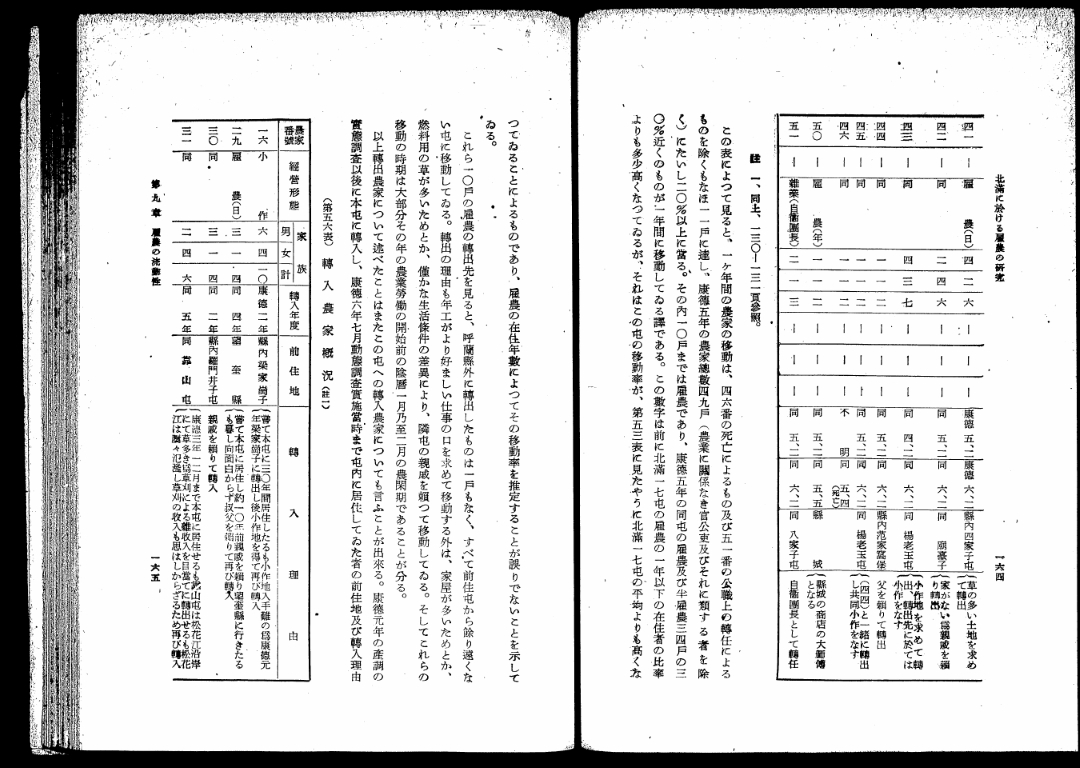 北滿に於ける雇農の研究
一六四
四一 ― 雇農(日) 四 二 六 ― ― ― 康德 五、二 康德 六、二 縣內四家子屯 草の多い土地を求めて轉出
四二 ― 同 二 四 六 ― ― ― 同 五、二 同 六、二 同 廟臺子 家がない爲親戚を賴り轉出
四三 ― 同 四 三 七 ― ― ― 同 四、二 同 六、二 同 楊老玉屯 小作地を求めて轉出、轉出先に於ては小作をなす
四四 ― 同 一 一 二 ― ― ― 同 五、二 同 六、二 縣內范家窩堡 父を賴りて轉出
四五 ― 同 一 一 二 ― ― ― 同 五、二 同 六、二 同 楊老玉屯 (四四)と一緖に轉出し共同小作をなす
四六 ― 同 一 一 二 ― ― ― 不明 同 五、四 (死亡)
五〇 ― 雇農(年) 一 一 二 ― ― ― 同 五、二 同 五、五 縣城 縣城の商店の大師傅となる
五一 ― 雜業(自衞團長) 二 一 三 ― ― ― 同 五、二 同 六、二 同 八家子屯 自衞團長として轉任
註 一、同上、一三〇―一三一頁參照。
この表によつて見ると、一ヶ年間の農家の移動は、四六番の死亡によるもの及び五一番の公職上の轉任による
ものを除くもなほ一一戶に達し、康德五年の農家總數四九戶(農業に關係なき官公吏及びそれに類する者を除
く)にたいし二〇%以上に當る。その內一〇戶までは雇農であり、康德五年の同屯の雇農及び半雇農三四戶の三
〇%近くのものが一年間に移動してゐる譯である。この數字は前に北滿一七屯の雇農の一年以下の在住者の比率
よりも多少高くなつてゐるが、それはこの屯の移動率が、第五三表に見たやうに北滿一七屯の平均よりも高くな
つてゐることによるものであり、雇農の在住年數によつてその移動率を推定することが誤りでないことを示して
ゐる。
これら一〇戶の雇農の轉出先を見ると、呼蘭縣外に轉出したものは一戶もなく、すべて前住屯から餘り遠くな
い屯に移動してゐる。轉出の理由も年工がより好ましい仕事の口を求めて移動する外は、家屋が多いためとか、
燃料用の草が多いためとか、僅かな生活條件の差異により、隣屯の親戚を賴つて移動してゐる。そしてこれらの
移動の時期は大部分その年の農業勞働の開始前の陰曆一月乃至二月の農閑期であることが分る。
以上轉出農家について述べたことはまたこの屯への轉入農家についても言ふことが出來る。康德元年の產調の
實態調査以後に本屯に轉入し、康德六年七月動態調査實施當時まで屯內に居住してゐた者の前住地及び轉入理由
(第五六表) 轉入農家槪況(註一)
農家番號 經營形態 家族 男 女 計 轉入年度 前住地 轉入理由
一六 小作 六 四 一〇 康德二年 縣內梁家崗子 嘗て本屯に三〇年間居住したるも小作地入手難の爲康德元年梁家崗子に轉出し後小作地を得て再び轉入
二九 雇農(日) 三 一 四 同 四年 望奎縣 嘗て本屯に居住し約一〇年前親戚を賴り望奎縣に行きたるも暮し向面白からず叔父を賴りて再び轉入
三〇 同 三 一 四 同 二年 縣內羅門井子屯 親戚を賴りて轉入
三一 同 二 四 六 同 五年 同 靠山屯 康德三年一二月まで本屯に居住せるも靠山屯は松花江沿岸にて草多き爲草刈による雜收入を目當てに轉出せるも松花江は屢々氾濫し草刈の收入も思はしからざるため再び轉入
第九章 雇農の流動性
一六五